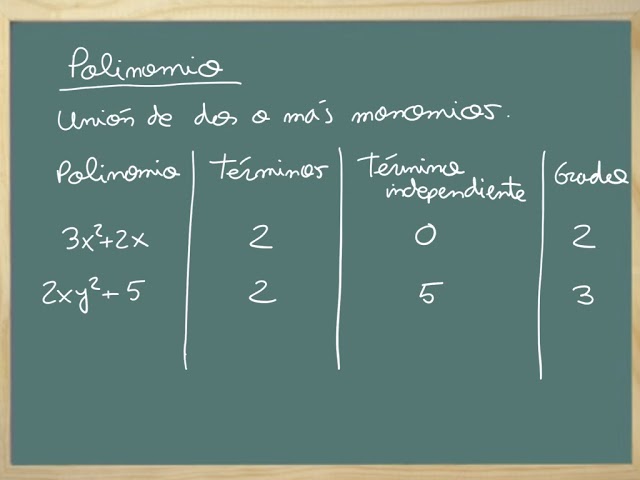 Polinomio
Unión de dos o más monomios.
Polinomio Términos Término independiente Grado
3x²+2x 2 0 2
2xy²+5 2 5 3